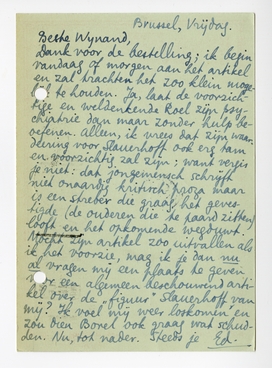 Brussel, Vrijdag.
Beste Wijnand,
Dank voor de bestelling; ik begin
vandaag of morgen aan het artikel
en zal trachten het zoo klein moge-
lijk te houden. Ja, laat de voorzich-
tige en weldenkende Roel zijn psy-
chiatrie dan maar zonder hulp be-
oefenen. Alleen, ik vrees dat zijn waar-
deering voor Slauerhoff ook erg tam
en voorzichtig zal zijn; want vergis
je niet: dat jongemensch schrijft
niet onaardig kritisch proza maar
is een streber die graag het geves-
tigde (de ouderen die te paard zitten)
looft en het opkomende wegduwt.
Mocht zijn artikel zoo uitvallen als
ik het voorzie, mag ik je dan nu
al vragen mij een plaats te geven
voor een algemeen beschouwend arti-
kel over de "figuur" Slauerhoff van
mij? Ik voel mij weer loskomen en
zou dien Borel ook graag wat schud-
den. Nu, tot nader. Steeds je Ed.